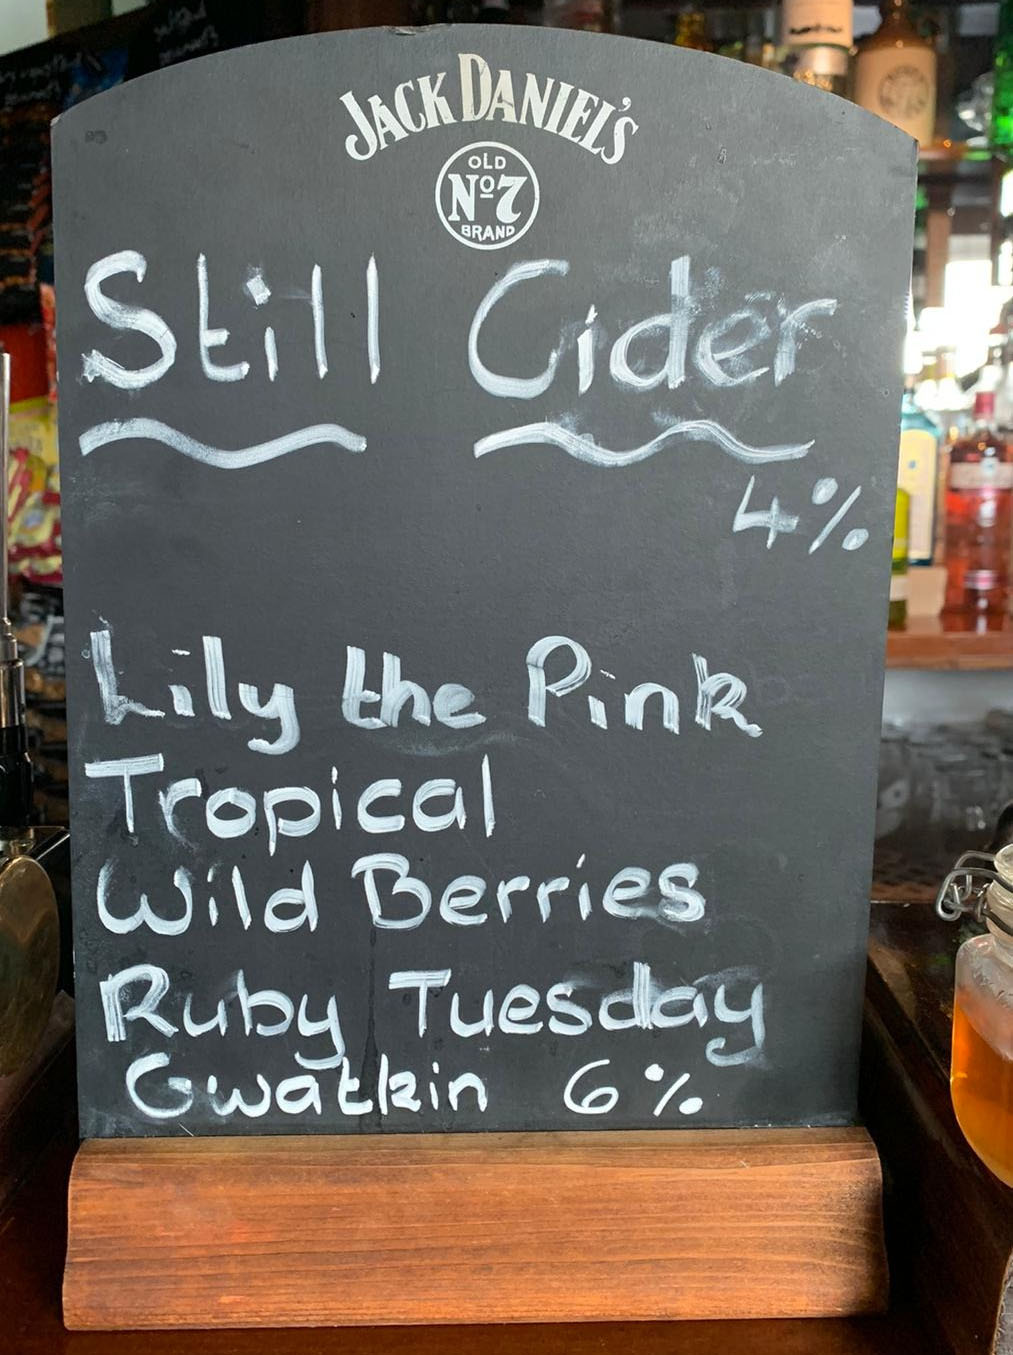 JACK DANIEL'S
OLD
Nº7
BRAND
Still Cider
4%
Lily the Pink
Tropical
Wild Berries
Ruby Tuesday
Gwatkin 6%